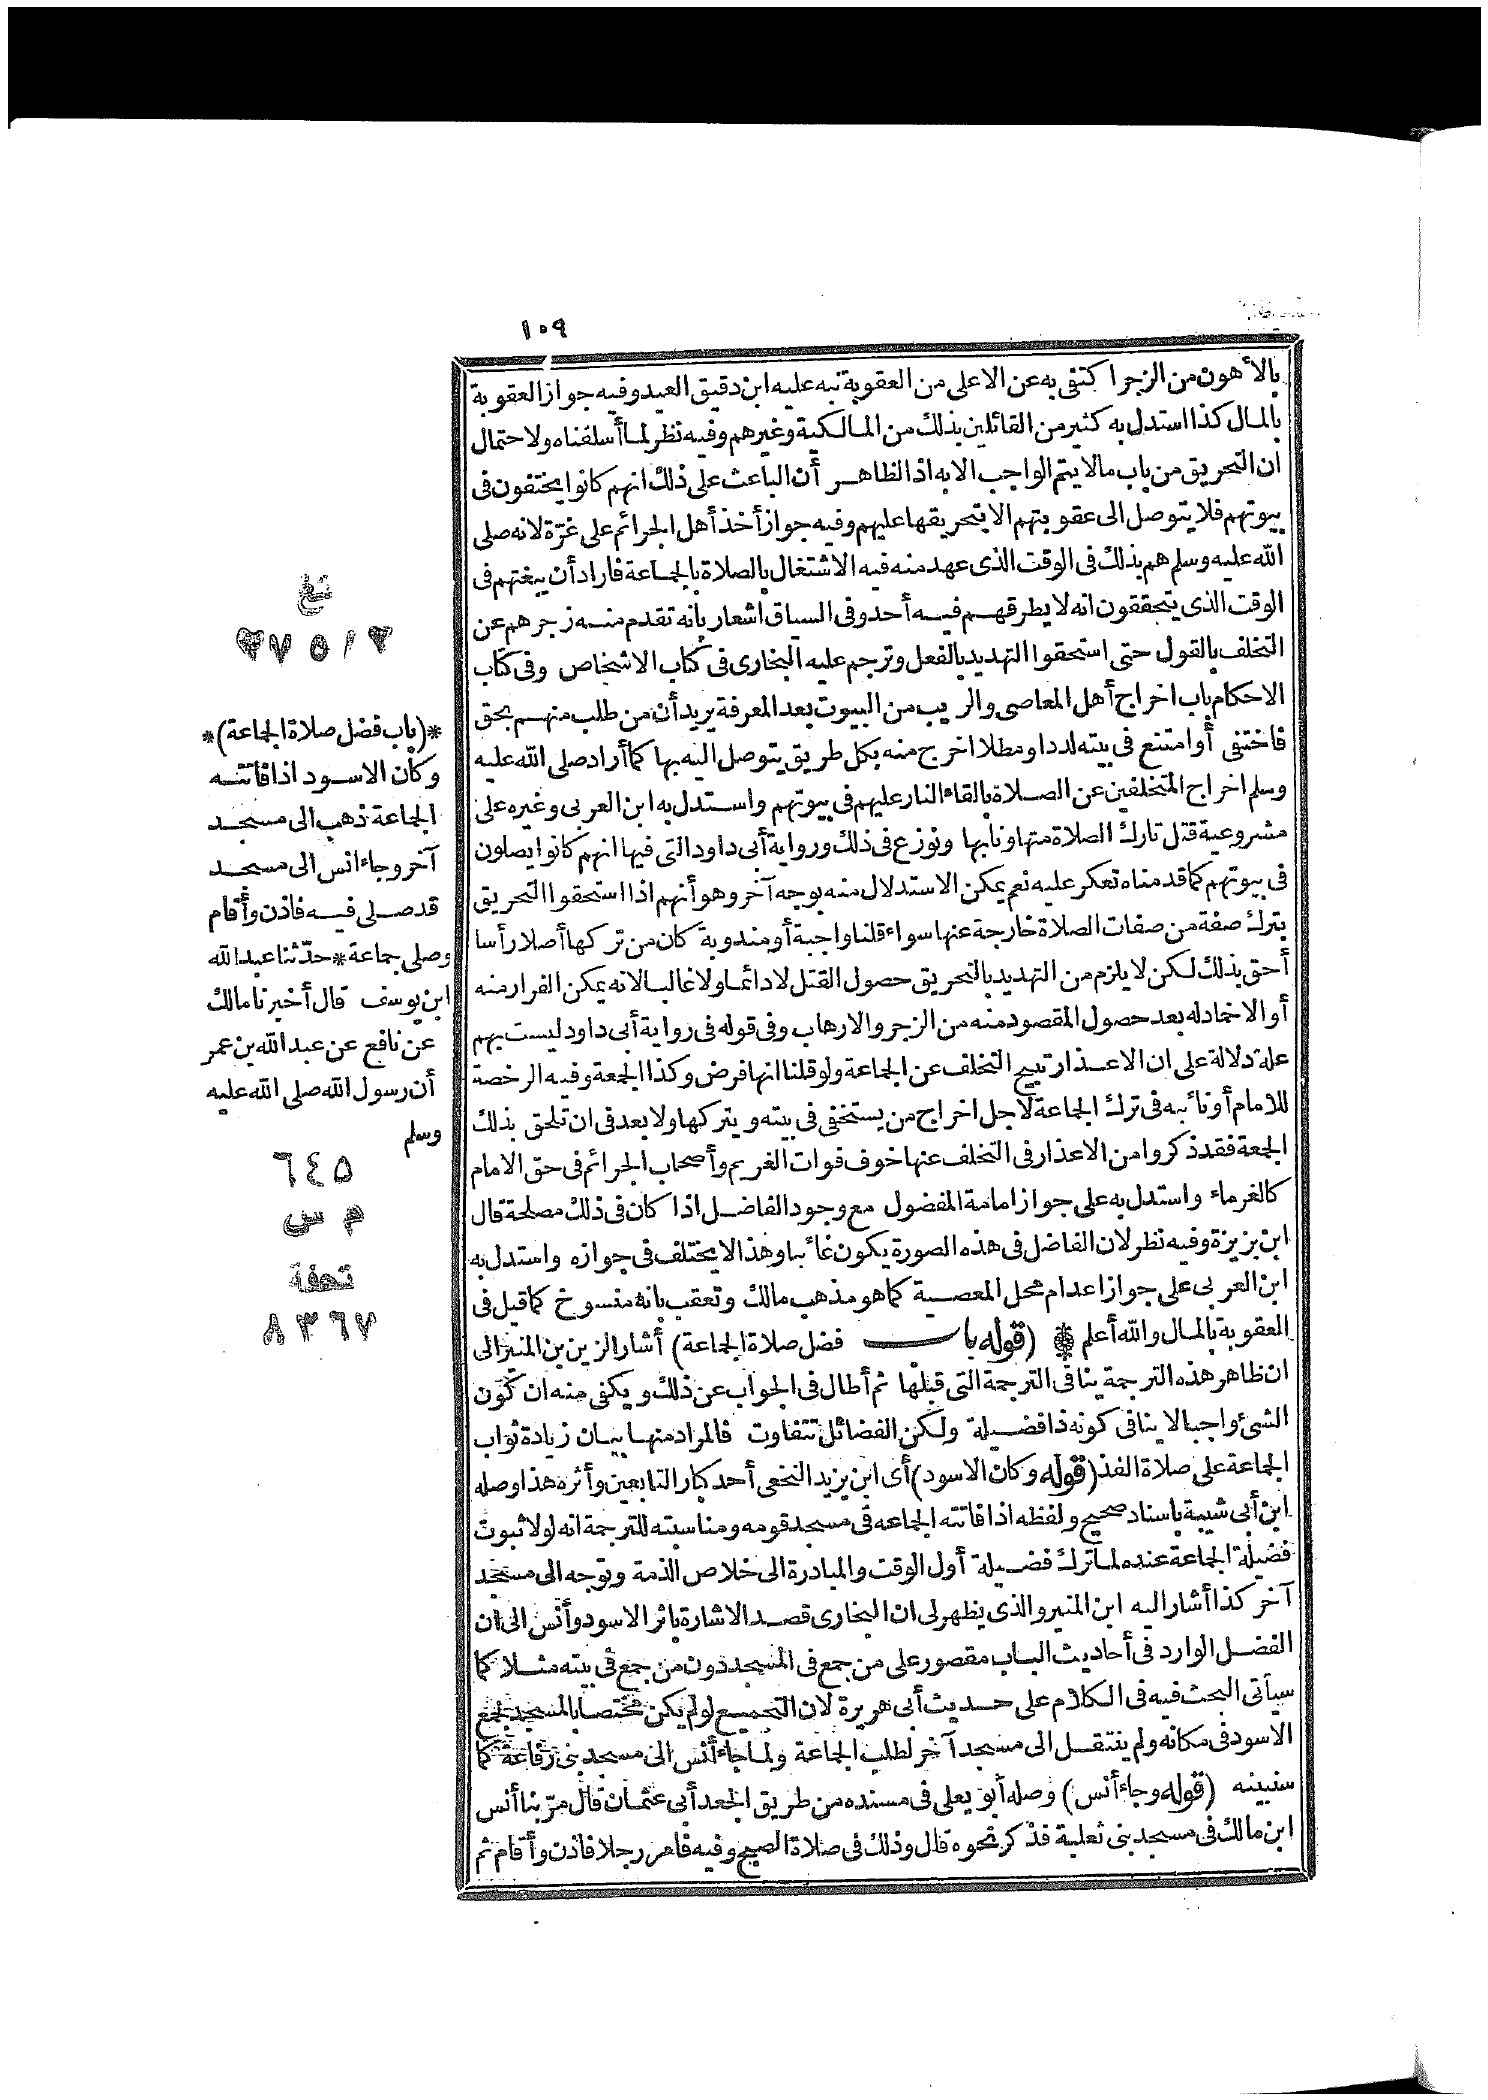 ١٠٩
بالأهون من الزجر اكتفى به عن الاعلى من العقوبة نبه عليه ابن دقيق العيد وفيه جواز العقوبة
بالمال كذا استدل به كثير من القائلين بذلك من المالكية وغيرهم وفيه نظر لما أسلفناه ولاحتمال
ان التحريق من باب مالا يتم الواجب الا به اذ الظاهر أن الباعث على ذلك انهم كانوا يختفون فى
بيوتهم فلا يتوصل الى عقوبتهم الا بتحريقها عليهم وفيه جواز أخذ أهل الجرائم على غرّة لانه صلى
الله عليه وسلم هم بذلك فى الوقت الذى عهد منه فيه الاشتغال بالصلاة بالجماعة فاراد أن يبغتهم فى
الوقت الذى يتحققون انه لا يطرقهم فيه أحد وفى السياق اشعار بأنه تقدم منه زجرهم عن
التخلف بالقول حتى استحقوا التهديد بالفعل وترجم عليه البخارى فى كتاب الاشخاص وفى كتاب
الاحكام باب اخراج أهل المعاصى والريب من البيوت بعد المعرفة يريد أن من طلب منهم بحق
فاختفى أو امتنع فى بيته لددا ومطلا اخرج منه بكل طريق يتوصل اليه بها كما أراد صلى الله عليه
وسلم اخراج المتخلفين عن الصلاة بالقاء النار عليهم فى بيوتهم واستدل به ابن العربى وغيره على
مشروعية قتل تارك الصلاة متهاونا بها ونوزع فى ذلك ورواية أبى داود التى فيها انهم كانوا يصلون
فى بيوتهم كما قدمناه تعكر عليه نعم يمكن الاستدلال منه بوجه آخر وهو أنهم اذا استحقوا التحريق
بترك صفة من صفات الصلاة خارجة عنها سواء قلنا واجبة أو مندوبة كان من تركها أصلا رأسا
أحق بذلك لكن لا يلزم من التهديد بالتحريق حصول القتل لا دائما ولا غالبا لانه يمكن الفرار منه
أو الاخماد له بعد حصول المقصود منه من الزجر والارهاب وفى قوله فى رواية أبى داود ليست بهم
علة دلالة على ان الاعذار تبيح التخلف عن الجماعة ولو قلنا انها فرض وكذا الجمعة وفيه الرخصة
للامام أو نائبه فى ترك الجماعة لاجل اخراج من يستخفى فى بيته ويتركها ولا بعد فى ان تلحق بذلك
الجمعة فقد ذكروا من الاعذار فى التخلف عنها خوف فوات الغريم وأصحاب الجرائم فى حق الامام
كالغرماء واستدل به على جواز امامة المفضول مع وجود الفاضل اذا كان فى ذلك مصلحة قال
ابن بزيزة وفيه نظر لان الفاضل فى هذه الصورة يكون غائبا وهذا لا يختلف فى جوازه واستدل به
ابن العربى على جواز اعدام محل المعصية كما هو مذهب مالك وتعقب بانه منسوخ كما قيل فى
العقوبة بالمال والله أعلم * (قوله باب فضل صلاة الجماعة) أشار الزين بن المنير الى
ان ظاهر هذه الترجمة ينافى الترجمة التى قبلها ثم أطال فى الجواب عن ذلك ويكفى منه ان كون
الشىء واجبا لا ينافى كونه ذا فضيلة ولكن الفضائل تتفاوت فالمراد منها بيان زيادة ثواب
الجماعة على صلاة الفذ (قوله وكان الاسود) أى ابن يزيد النخعى أحد كبار التابعين وأثره هذا وصله
ابن أبى شيبة باسناد صحيح ولفظه اذا فاتته الجماعة فى مسجد قومه ومناسبته للترجمة انه لولا ثبوت
فضيلة الجماعة عنده لما ترك فضيلة أول الوقت والمبادرة الى خلاص الذمة وتوجه الى مسجد
آخر كذا أشار اليه ابن المنير والذى يظهر لى ان البخارى قصد الاشارة باثر الاسود وأنس الى ان
الفضل الوارد فى أحاديث الباب مقصور على من جمع فى المسجد دون من جمع فى بيته مثلا كما
سيأتى البحث فيه فى الكلام على حديث أبى هريرة لان التجميع لو لم يكن مختصا بالمسجد لجمع
الاسود فى مكانه ولم ينتقل الى مسجد آخر لطلب الجماعة ولما جاء أنس الى مسجد بنى رفاعة كما
سنبينه (قوله وجاء أنس) وصله أبو يعلى فى مسنده من طريق الجعد أبى عثمان قال مرّ بنا أنس
ابن مالك فى مسجد بنى ثعلبة فذكر نحوه قال وذلك فى صلاة الصبح وفيه فامر رجلا فاذن وأقام ثم
تغ
٢٧٥/٢
*(باب فضل صلاة الجماعة)*
وكان الاسود اذا فاتته
الجماعة ذهب الى مسجد
آخر وجاء انس الى مسجد
قد صلى فيه فاذن وأقام
وصلى جماعة * حدّثنا عبد الله
ابن يوسف قال أخبرنا مالك
عن نافع عن عبد الله بن عمر
أن رسول الله صلى الله عليه
وسلم
٦٤٥
م س
تحفة
٨٣٦٧